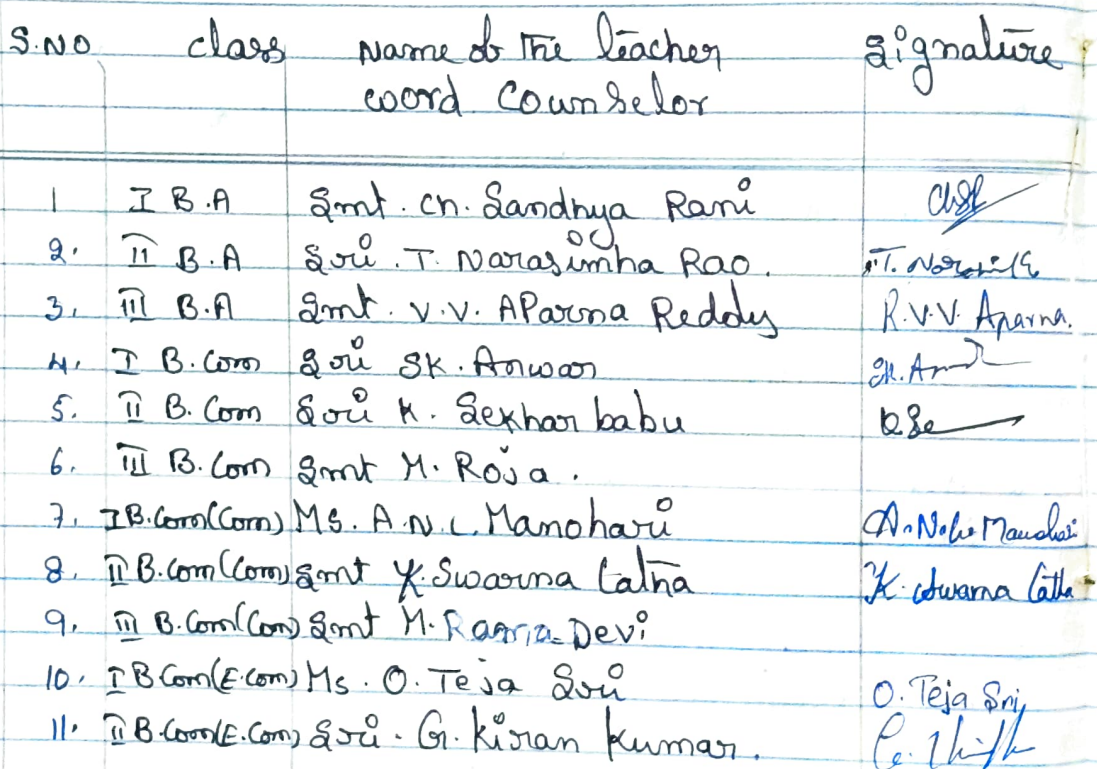 S.NO class Name of the teacher Signature
word Counselor
1 I B.A Smt. Ch. Sandhya Rani
2. II B.A Sri. T. Narasimha Rao. T.
3. III B.A Smt. V.V. AParna Reddy R.V.V. Aparna.
4. I B.Com Sri SK. Anwar SK.
5. II B.Com Sri K. Sekhar babu
6. III B.Com Smt M. Roja.
7. I B.Com(Com) Ms. A.N.L. Manohari Manohari
8. II B.Com(Com) Smt K. Swarna Latha K. Swarna Latha
9. III B.Com(Com) Smt M. Rama Devi
10. I B Com(E.Com) Ms. O. Teja Sri O. Teja Sri
11. II B.Com(E.Com) Sri. G. Kiran Kumar.